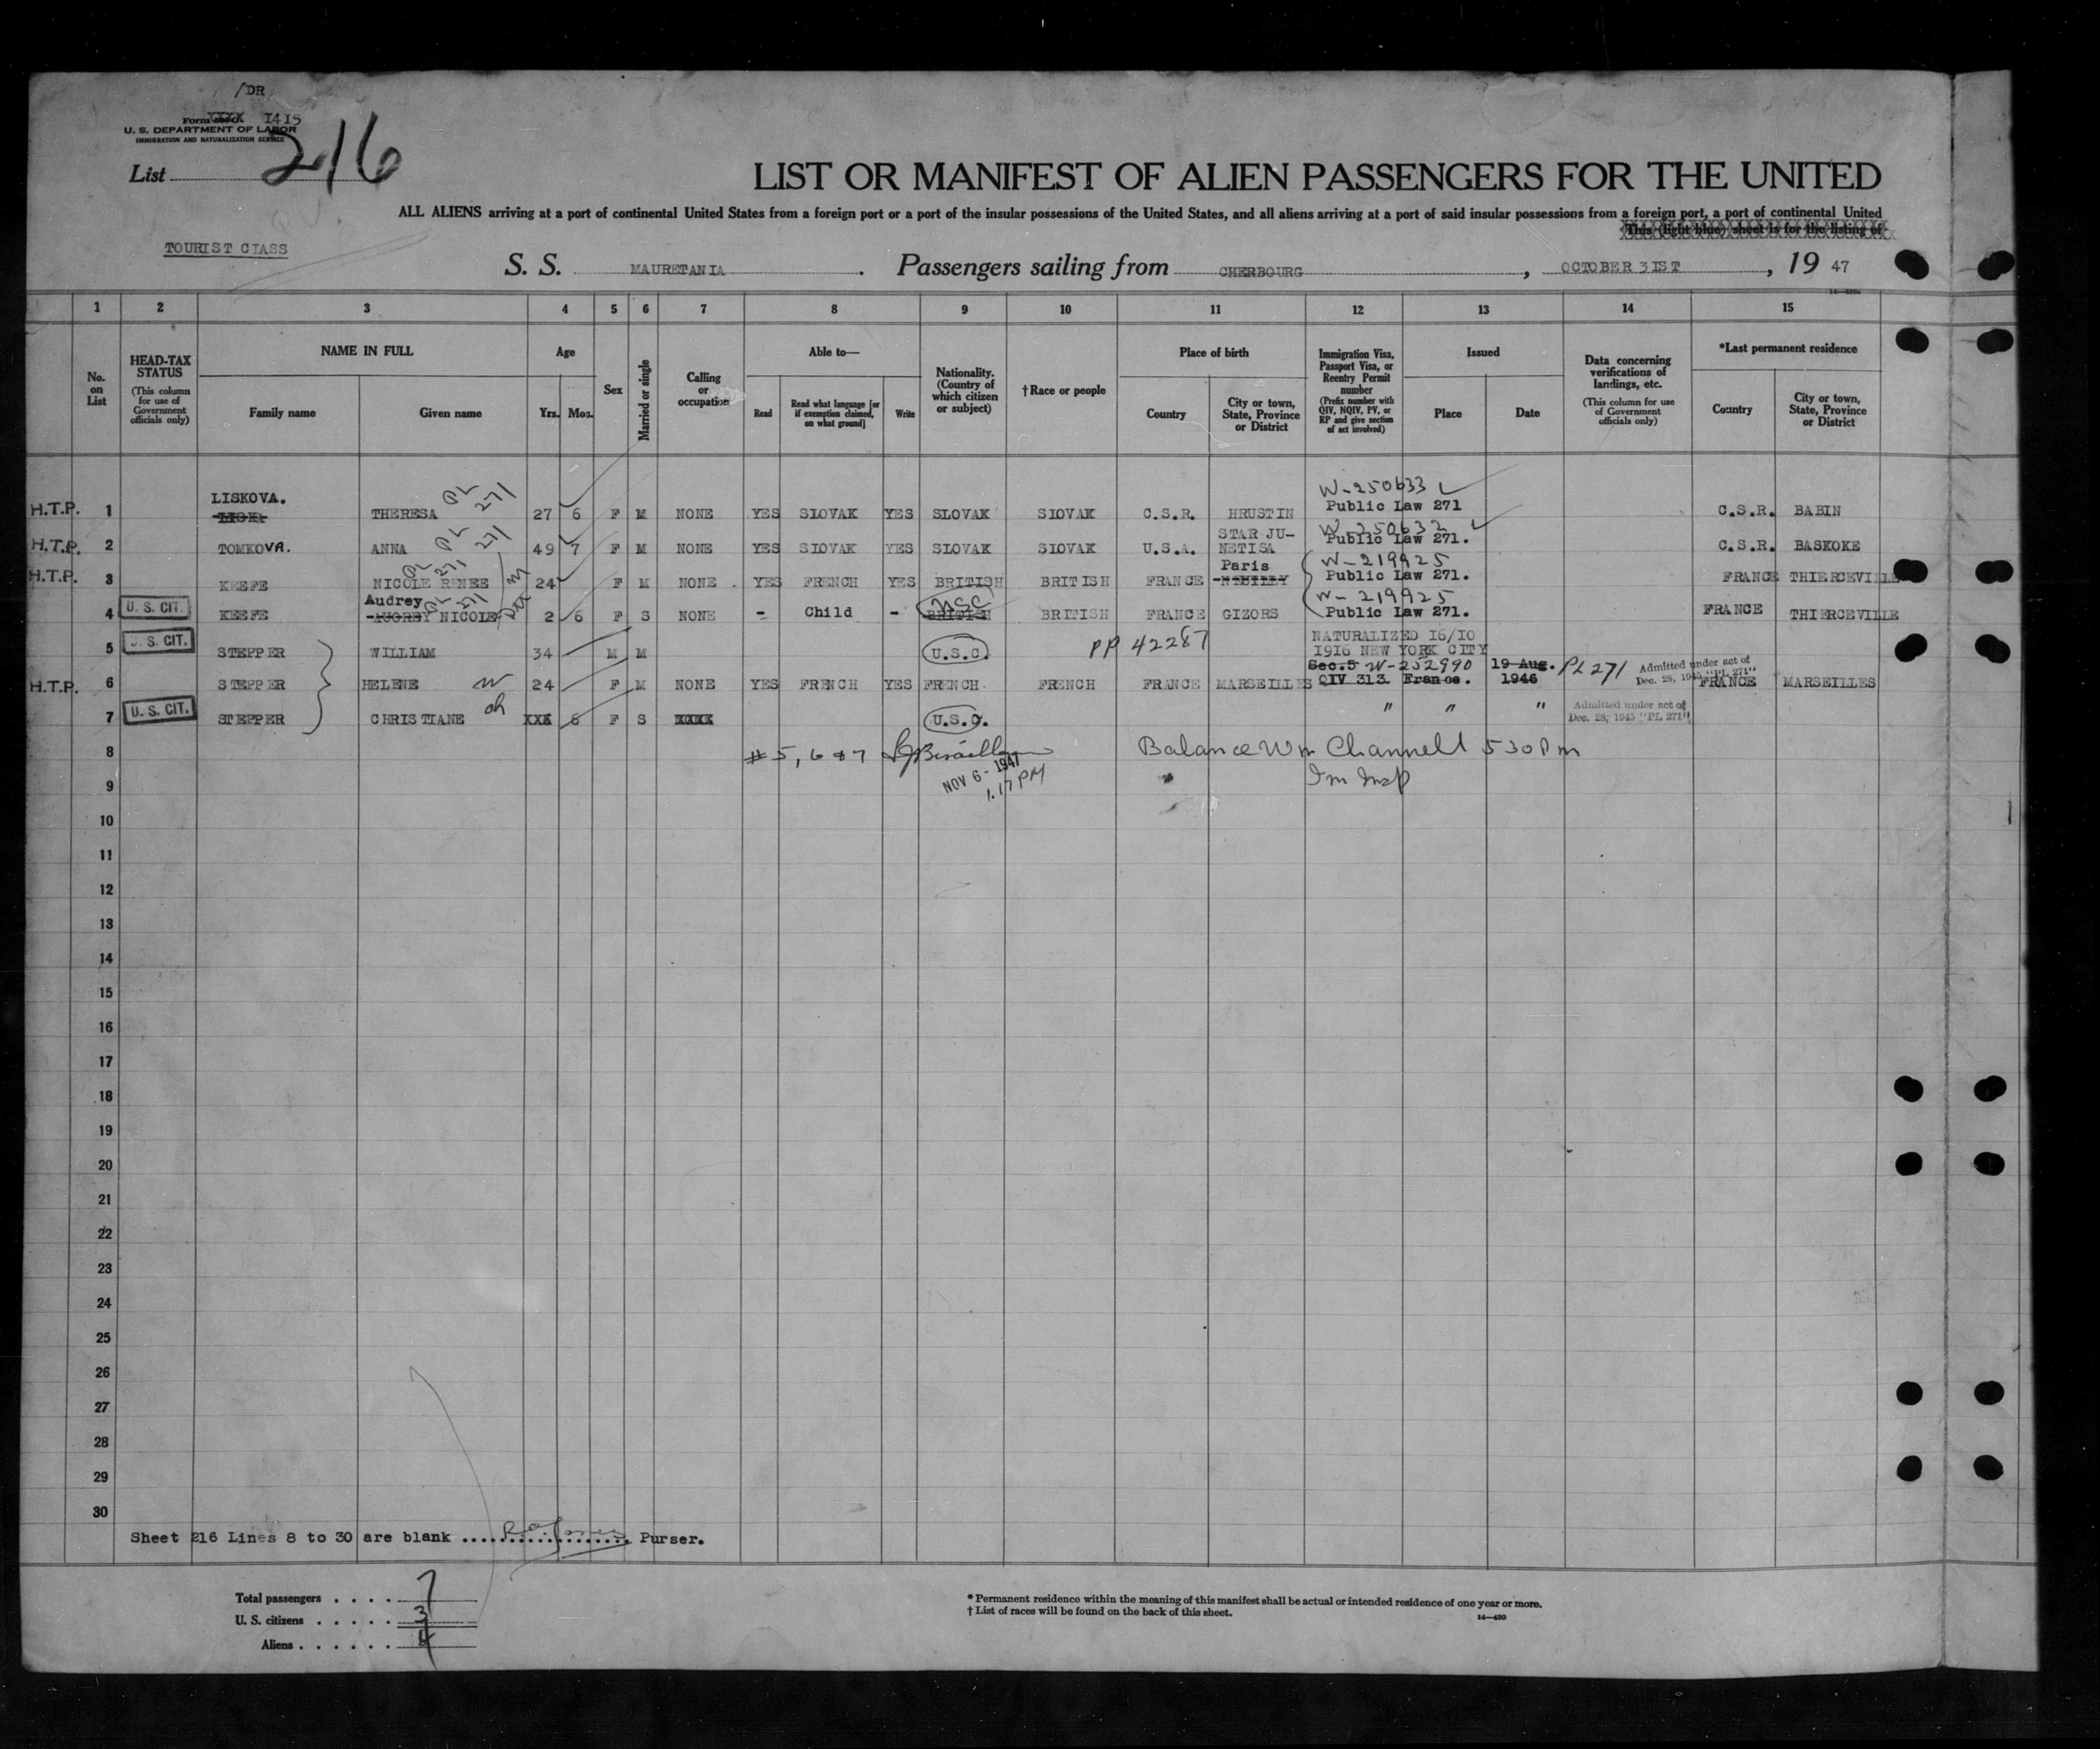 /DR
Form XXXX 1415
U. S. DEPARTMENT OF LABOR
IMMIGRATION AND NATURALIZATION SERVICE
List 216
LIST OR MANIFEST OF ALIEN PASSENGERS FOR THE UNITED
ALL ALIENS arriving at a port of continental United States from a foreign port or a port of the insular possessions of the United States, and all aliens arriving at a port of said insular possessions from a foreign port, a port of continental United
This (light blue) sheet is for the listing of
TOURIST CLASS
S. S. MAURETANIA. Passengers sailing from CHERBOURG, OCTOBER 31ST, 19 47
1 2 3 4 5 6 7 8 9 10 11 12 13 14 15
No. on List
HEAD-TAX STATUS (This column for use of Government officials only)
NAME IN FULL
Family name Given name
Age
Yrs. Mos.
Sex
Married or single
Calling or occupation
Able to—
Read Read what language [or if exemption claimed, on what ground] Write
Nationality. (Country of which citizen or subject)
†Race or people
Place of birth
Country City or town, State, Province or District
Immigration Visa, Passport Visa, or Reentry Permit number (Prefix number with QIV, NQIV, PV, or RP and give section of act involved)
Issued
Place Date
Data concerning verifications of landings, etc. (This column for use of Government officials only)
*Last permanent residence
Country City or town, State, Province or District
H.T.P. 1 LISKOVA. THERESA PL 271 27 6 F M NONE YES SLOVAK YES SLOVAK SLOVAK C.S.R. HRUSTIN W-250633 Public Law 271 C.S.R. BABIN
H.T.P. 2 TOMKOVA. ANNA PL 271 49 7 F M NONE YES SLOVAK YES SLOVAK SLOVAK U.S.A. STAR JU-NETISA W-250632 Public Law 271. C.S.R. BASKOKE
H.T.P. 3 KEEFE NICOLE RENEE PL 271 24 F M NONE . YES FRENCH YES BRITISH BRITISH FRANCE Paris W-219925 Public Law 271. FRANCE THIERCEVILLE
4 U. S. CIT. KEEFE Audrey AUGREY NICOLE PL 271 2 6 F S NONE - Child - USC BRITISH BRITISH FRANCE GIZORS W-219925 Public Law 271. FRANCE THIERCEVILLE
5 U. S. CIT. STEPPER WILLIAM 34 M M U.S.C. PP 42287 NATURALIZED 16/10 1916 NEW YORK CITY
H.T.P. 6 STEPPER HELENE W 24 F M NONE YES FRENCH YES FRENCH FRENCH FRANCE MARSEILLES Sec.5 W-252990 QIV 313. France. 19 Aug. 1946 PL 271 Admitted under act of Dec. 28, 1945 "PL 271" FRANCE MARSEILLES
7 U. S. CIT. STEPPER CHRISTIANE ch XXX 6 F S XXXX U.S.C. " " " Admitted under act of Dec. 28, 1945 "PL 271"
8 # 5, 6 & 7 Balance Wm Channell 5 30 Pm
9 NOV 6 - 1947 1.17 PM Im Insp
10
11
12
13
14
15
16
17
18
19
20
21
22
23
24
25
26
27
28
29
30
Sheet 216 Lines 8 to 30 are blank .................... Purser.
Total passengers . . . . 7
U. S. citizens . . . . . 3
Aliens . . . . . . 4
* Permanent residence within the meaning of this manifest shall be actual or intended residence of one year or more.
† List of races will be found on the back of this sheet.
14—430